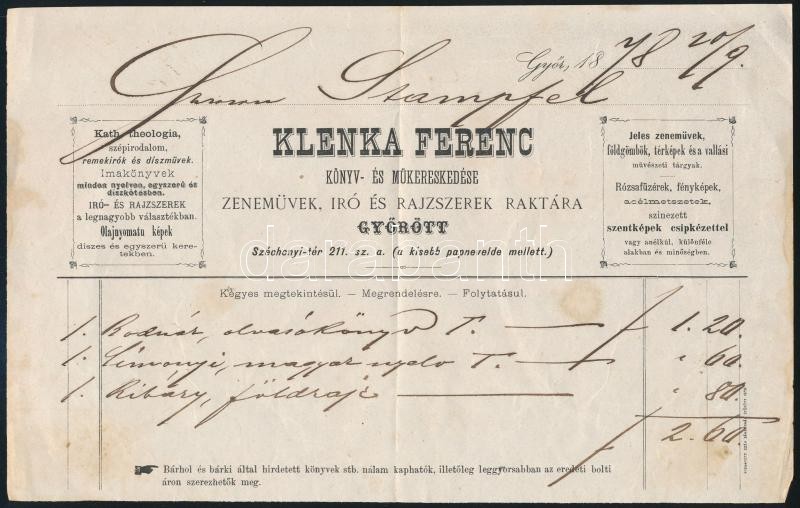 Győr, 1878 20/9.
Herrn Stampfel
Kath. theologia,
szépirodalom,
remekirók és diszművek.
Imakönyvek
minden nyelven, egyszerű és
diszkötésben.
IRÓ- ÉS RAJZSZEREK
a legnagyobb választékban.
Olajnyomatu képek
diszes és egyszerű kere-
tekben.
KLENKA FERENC
KÖNYV- ÉS MŰKERESKEDÉSE
ZENEMÜVEK, IRÓ ÉS RAJZSZEREK RAKTÁRA
GYŐRÖTT
Széchenyi-tér 211. sz. a. (a kisebb papnevelde mellett.)
Jeles zeneművek,
földgömbök, térképek és a vallási
művészeti tárgyak.
Rózsafüzérek, fényképek,
acélmetszetek,
szinezett
szentképek csipkézettel
vagy anélkül, különféle
alakban és minőségben.
darabanth
Kegyes megtekintésül. — Megrendelésre. — Folytatásul.
1. Bodnár, olvasókönyv T. — f 1. 20.
1. Simonyi, magyar nyelv T. — " 60.
1. Ribáry, földrajz — " 80.
f 2. 60.
Bárhol és bárki által hirdetett könyvek stb. nálam kaphatók, illetőleg leggyorsabban az eredeti bolti
áron szerezhetők meg.